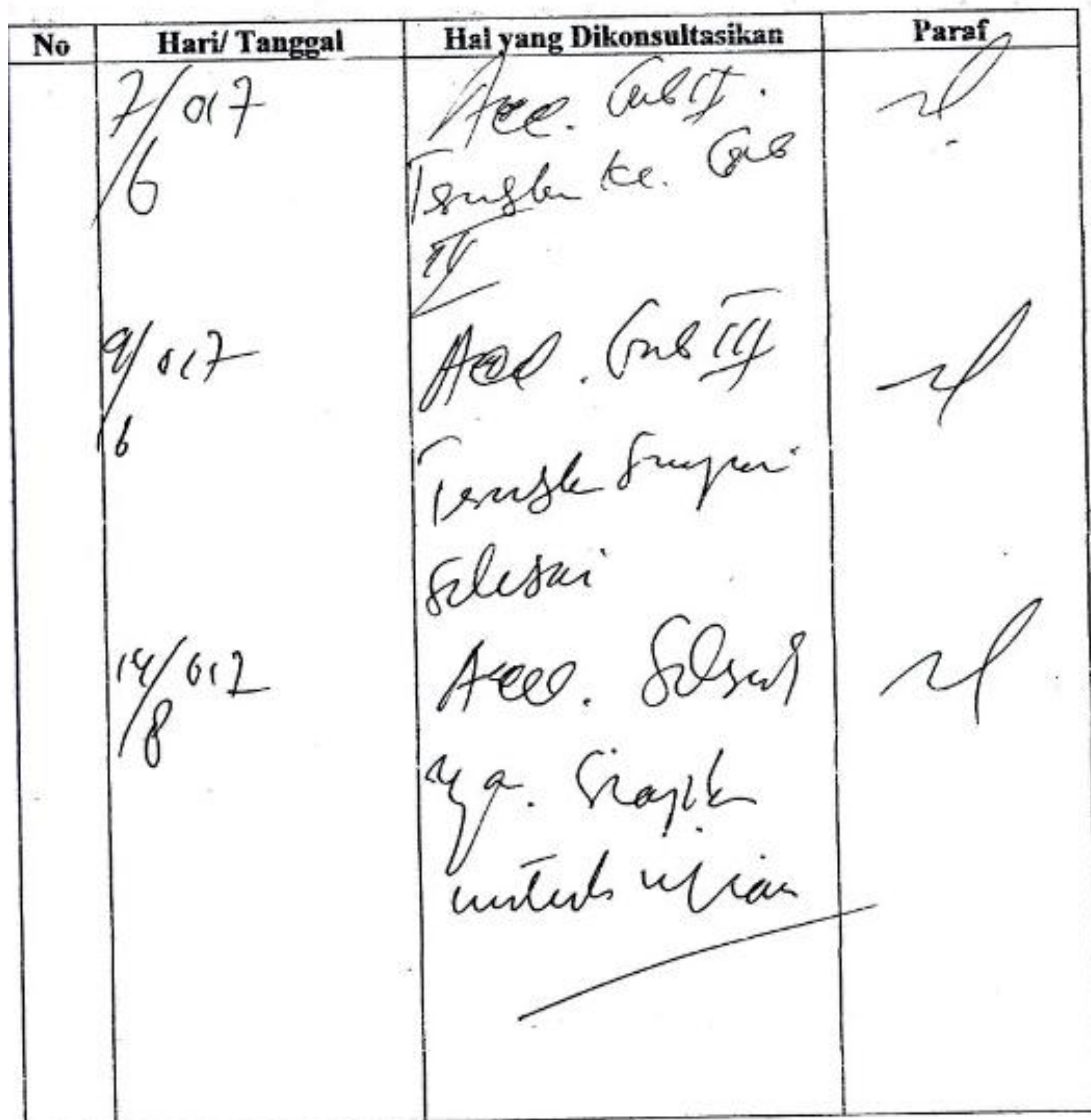 No Hari/ Tanggal Hal yang Dikonsultasikan Paraf
7/6 017 Acc. Bab II.
Teruskan ke. Bab
IV
9/6 017 Acc. Bab III
Teruskan sampai
Selesai
14/8 017 Acc. Selesai
Siapkan
untuk ujian